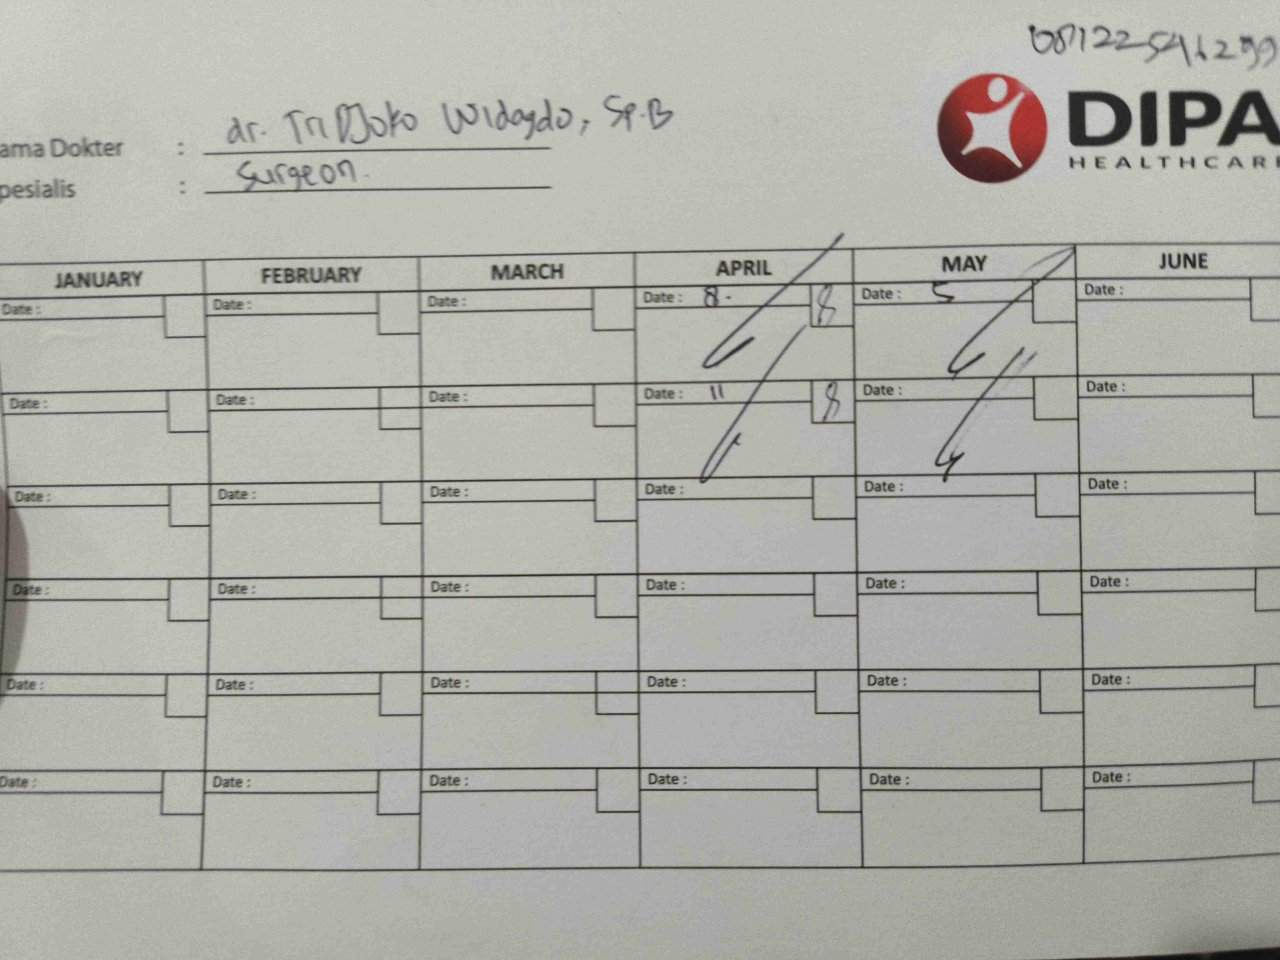 081225461299
DIPA
HEALTHCARE
ama Dokter : dr. Tri Djoko Widagdo, Sp.B
pesialis : Surgeon.
JANUARY FEBRUARY MARCH APRIL MAY JUNE
Date : Date : Date : Date : 8. 8 Date : 5 Date :
Date : Date : Date : Date : 11 8 Date : Date :
Date : Date : Date : Date : Date : Date :
Date : Date : Date : Date : Date : Date :
Date : Date : Date : Date : Date : Date :
Date : Date : Date : Date : Date : Date :